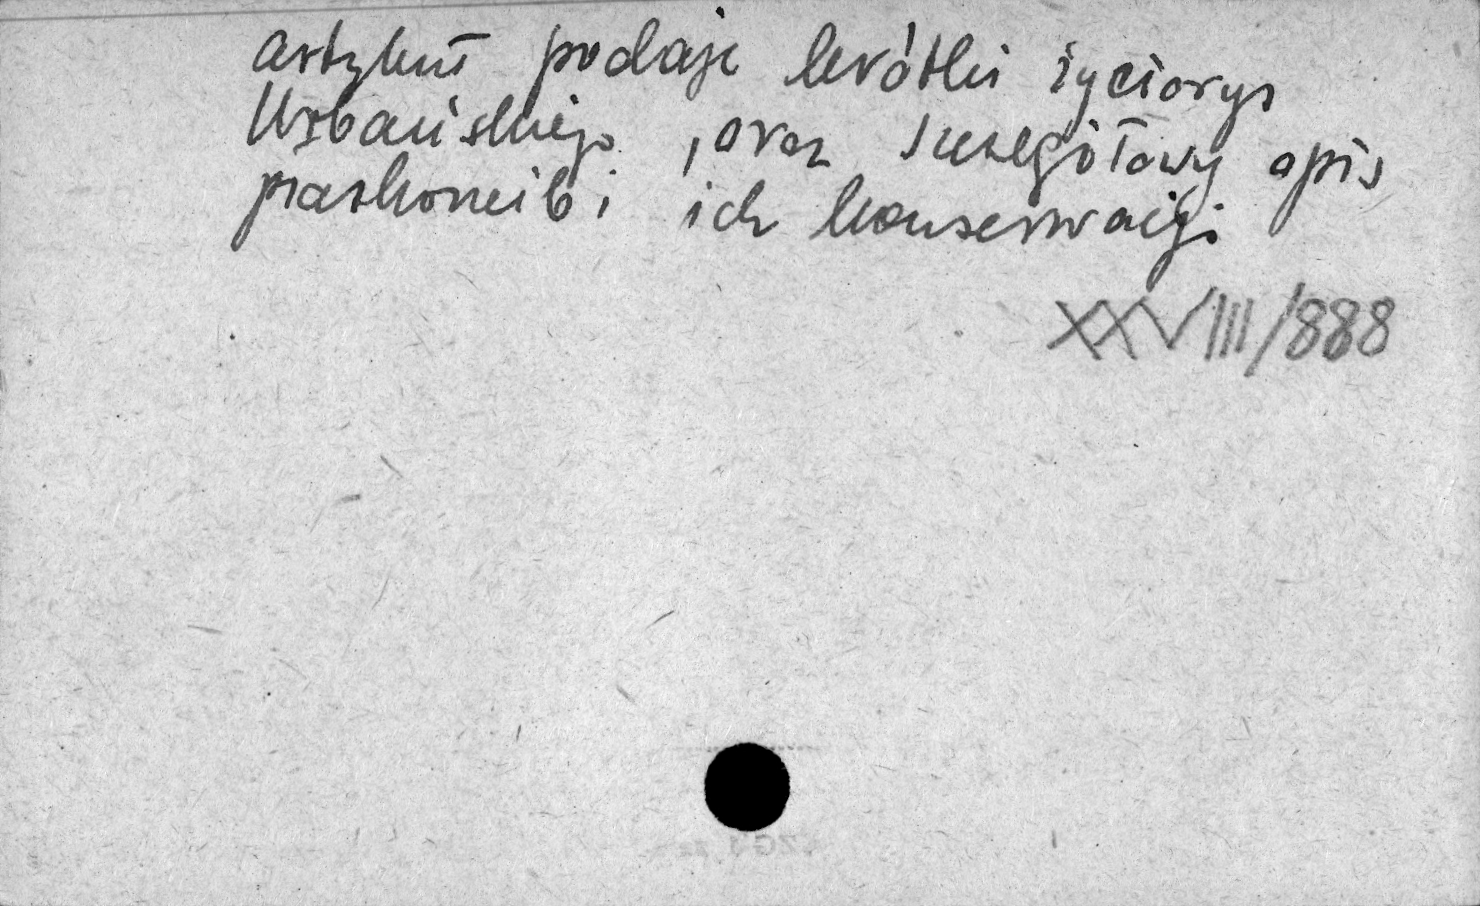 artykuł podaje krótki życiorys
Urbańskiego, oraz szczegółowy opis
piaskownicy i ich konserwacji
XXVIII/888